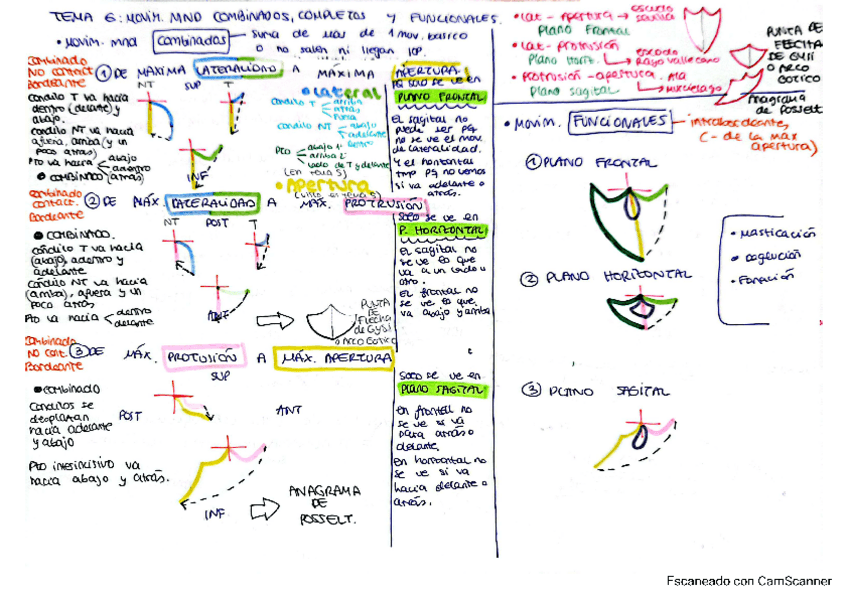 TEMA 6: MOVIM. MND COMBINADOS, COMPLETOS Y FUNCIONALES.
• MOVIM. mnd Combinadas → suma de mas de 1 mov. básico
o no salen ni llegan IOP.
Combinado
No contact.
Bordeante
① DE MÁXIMA LATERALIDAD A MÁXIMA APERTURA
NT SUP T
Condilo T va hacia
dentro (delante) y
abajo.
Condilo NT va hacia
afuera, arriba (y un
poco atras)
Pto va hacia abajo
adentro
(atras)
• COMBINADO
INF
• Lateral
Condilo T arriba
atras
fuera
condilo NT abajo
adelante
dentro
Pto abajo 1º
arriba 2º
lado de T y delante
(en tema 5)
• Apertura
solo se ve en
PLANO FRONTAL
EL sagital no
puede ser pq
no se ve el mov.
de lateralidad.
Y el horizontal
tmp pq no vemos
si va adelante o
atrás.
combinado
contact.
Bordeante
② DE MÁX. LATERALIDAD A MÁX. PROTRUSIÓN
NT POST T
• COMBINADO.
cóndilo T va hacia
(abajo), adentro y
adelante
Cóndilo NT va hacia
(arriba), afuera y un
poco atrás
Pto va hacia dentro
delante
ANT
PUNTA
DE
Flecha
de Gysi
o Arco Gotico
SOLO se ve en
P. HORIZONTAL
El sagital no
se ve lo que
va a un lado u
otro.
El frontal no
se ve lo que
va abajo y arriba
Combinado
No cont.
Bordeante
③ DE MÁX. PROTUSIÓN A MÁX. APERTURA
SUP
• COMBINADO
Condilos se
desplazan
hacia adelante
y abajo
POST
ANT
Pto interincisivo va
hacia abajo y atrás.
INF.
ANAGRAMA
DE
POSSELT.
SOLO se ve en
PLANO SAGITAL
En frontal no
se ve si va
para atrás o
delante,
En horizontal no
se ve si va
hacia delante o
atrás.
• Lat - Apertura → escudo
Plano Frontal
• Lat - Protrusión escudo
Plano Horiz. Rayo vallecano
• Protrusión - apertura. Ala
Plano sagital murciélago
PUNTA DE
FLECHA
DE GYSI
O ARCO
GOTICO
Anagrama
de Posselt
• MOVIM. FUNCIONALES → intrabordeantes
(- de la max
apertura)
① PLANO FRONTAL
② PLANO HORIZONTAL
③ PLANO SAGITAL
• Masticación
• Deglución
• Fonación
Escaneado con CamScanner